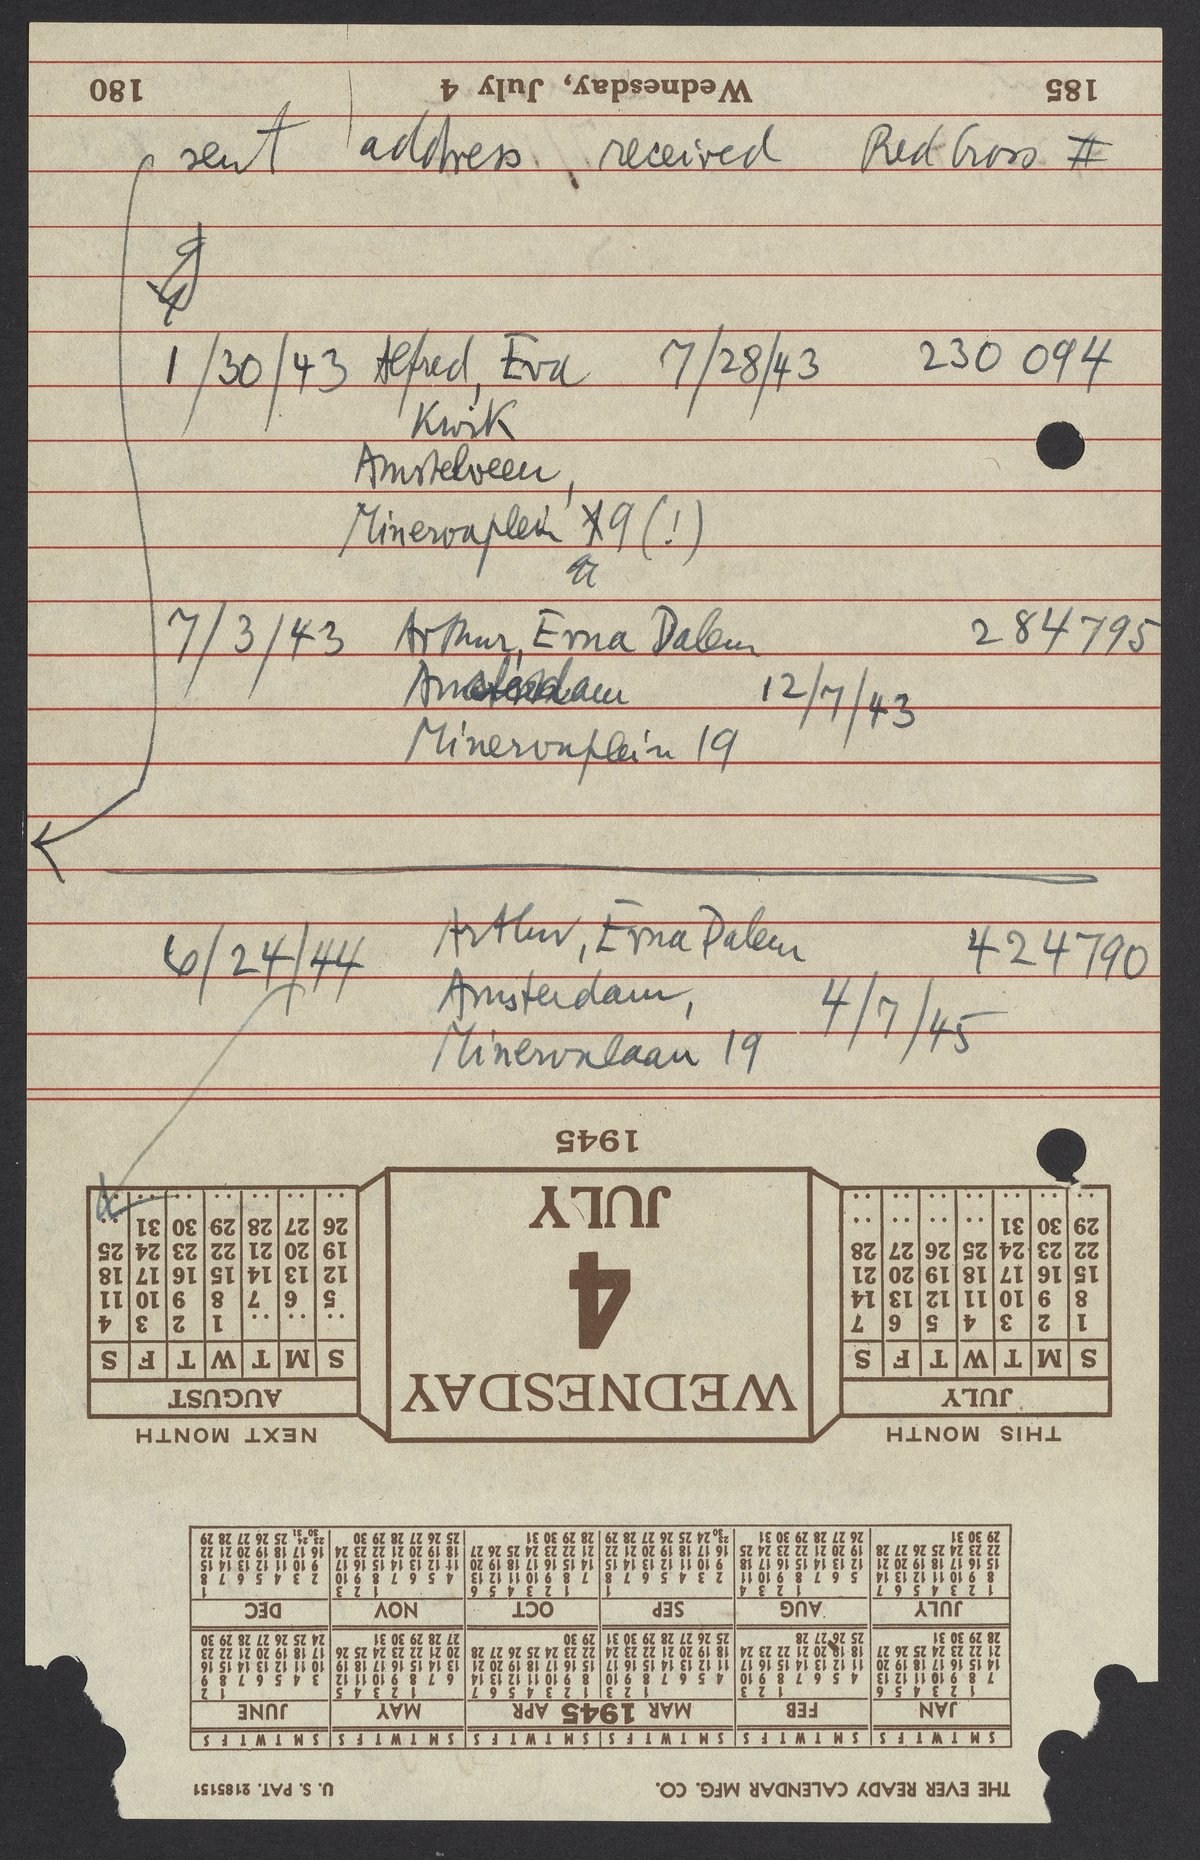 185 Wednesday, July 4 180
sent address received Red Cross #
1/30/43 Alfred, Eva 7/28/43 230 094
Kwik
Amstelveen,
Minervaplein 19 (!)
7/3/43 Arthur, Erna Dalem 284795
Amsterdam 12/7/43
Minervaplein 19
6/24/44 Arthur, Erna Dalem 424790
Amsterdam, 4/7/45
Minervalaan 19
THE EVER READY CALENDAR MFG. CO. U. S. PAT. 2185151
S M T W T F S S M T W T F S S M T W T F S S M T W T F S S M T W T F S S M T W T F S
JAN FEB MAR 1945 APR MAY JUNE
JULY AUG SEP OCT NOV DEC
THIS MONTH
JULY
S M T W T F S
1 2 3 4 5 6 7
8 9 10 11 12 13 14
15 16 17 18 19 20 21
22 23 24 25 26 27 28
29 30 31 .. .. .. ..
WEDNESDAY
4
JULY
1945
NEXT MONTH
AUGUST
S M T W T F S
.. .. .. 1 2 3 4
5 6 7 8 9 10 11
12 13 14 15 16 17 18
19 20 21 22 23 24 25
26 27 28 29 30 31 ..